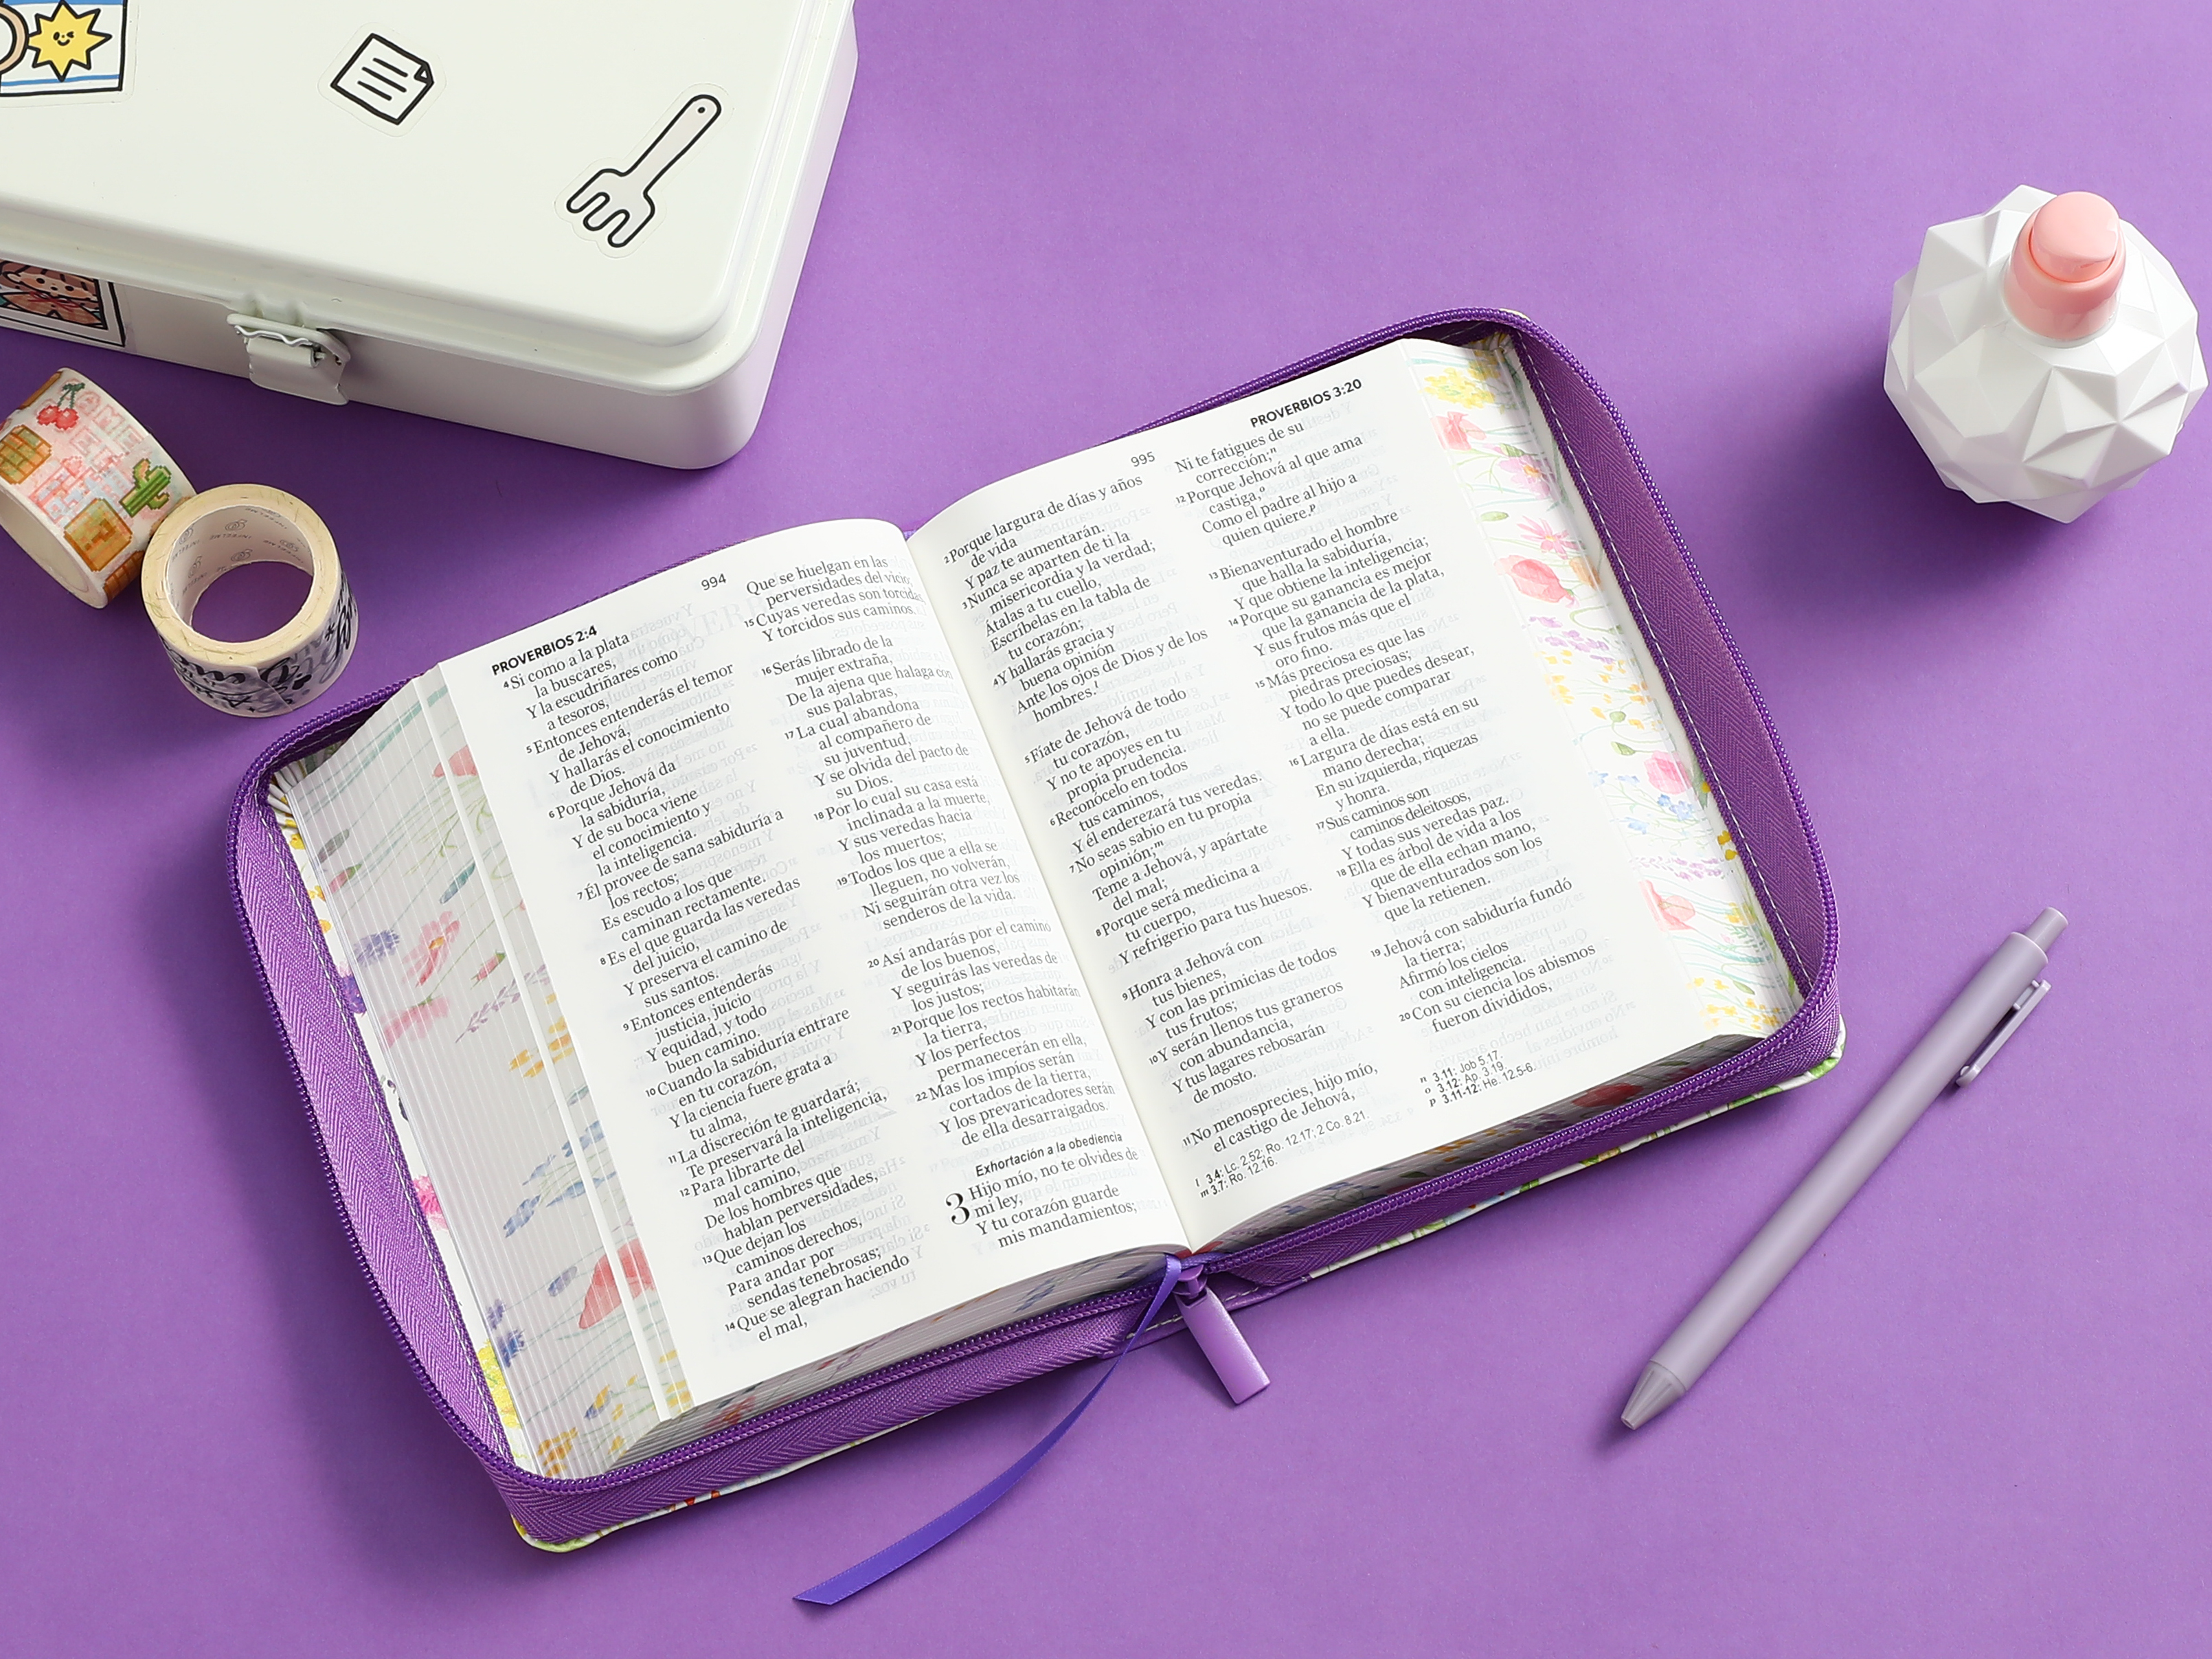 PROVERBIOS 2:4
994
4 Si como a la plata
la buscares,
Y la escudriñares como
a tesoros,
5 Entonces entenderás el temor
de Jehová,
Y hallarás el conocimiento
de Dios.
6 Porque Jehová da
la sabiduría,
Y de su boca viene
el conocimiento y
la inteligencia.
7 Él provee de sana sabiduría a
los rectos;
Es escudo a los que
caminan rectamente.
8 Es el que guarda las veredas
del juicio,
Y preserva el camino de
sus santos.
9 Entonces entenderás
justicia, juicio
Y equidad, y todo
buen camino.
10 Cuando la sabiduría entrare
en tu corazón,
Y la ciencia fuere grata a
tu alma,
11 La discreción te guardará;
Te preservará la inteligencia,
12 Para librarte del
mal camino,
De los hombres que
hablan perversidades,
13 Que dejan los
caminos derechos,
Para andar por
sendas tenebrosas;
14 Que se alegran haciendo
el mal,
Que se huelgan en las
perversidades del vicio;
15 Cuyas veredas son torcidas,
Y torcidos sus caminos.
16 Serás librado de la
mujer extraña,
De la ajena que halaga con
sus palabras,
17 La cual abandona
al compañero de
su juventud,
Y se olvida del pacto de
su Dios.
18 Por lo cual su casa está
inclinada a la muerte,
Y sus veredas hacia
los muertos;
19 Todos los que a ella se
lleguen, no volverán,
Ni seguirán otra vez los
senderos de la vida.
20 Así andarás por el camino
de los buenos,
Y seguirás las veredas de
los justos;
21 Porque los rectos habitarán
la tierra,
Y los perfectos
permanecerán en ella,
22 Mas los impíos serán
cortados de la tierra,
Y los prevaricadores serán
de ella desarraigados.
Exhortación a la obediencia
3 Hijo mío, no te olvides de
mi ley,
Y tu corazón guarde
mis mandamientos;
995
PROVERBIOS 3:20
2 Porque largura de días y años
de vida
Y paz te aumentarán.
3 Nunca se aparten de ti la
misericordia y la verdad;
Átalas a tu cuello,
Escríbelas en la tabla de
tu corazón;
4 Y hallarás gracia y
buena opinión
Ante los ojos de Dios y de los
hombres.l
5 Fíate de Jehová de todo
tu corazón,
Y no te apoyes en tu
propia prudencia.
6 Reconócelo en todos
tus caminos,
Y él enderezará tus veredas.
7 No seas sabio en tu propia
opinión;m
Teme a Jehová, y apártate
del mal;
8 Porque será medicina a
tu cuerpo,
Y refrigerio para tus huesos.
9 Honra a Jehová con
tus bienes,
Y con las primicias de todos
tus frutos;
10 Y serán llenos tus graneros
con abundancia,
Y tus lagares rebosarán
de mosto.
11 No menosprecies, hijo mío,
el castigo de Jehová,
l 3.4: Lc. 2.52; Ro. 12.17; 2 Co. 8.21.
m 3.7: Ro. 12.16.
Ni te fatigues de su
corrección;n
12 Porque Jehová al que ama
castiga,o
Como el padre al hijo a
quien quiere.p
13 Bienaventurado el hombre
que halla la sabiduría,
Y que obtiene la inteligencia;
14 Porque su ganancia es mejor
que la ganancia de la plata,
Y sus frutos más que el
oro fino.
15 Más preciosa es que las
piedras preciosas;
Y todo lo que puedes desear,
no se puede comparar
a ella.
16 Largura de días está en su
mano derecha;
En su izquierda, riquezas
y honra.
17 Sus caminos son
caminos deleitosos,
Y todas sus veredas paz.
18 Ella es árbol de vida a los
que de ella echan mano,
Y bienaventurados son los
que la retienen.
19 Jehová con sabiduría fundó
la tierra;
Afirmó los cielos
con inteligencia.
20 Con su ciencia los abismos
fueron divididos,
n 3.11: Job 5.17.
o 3.12: Ap. 3.19.
p 3.11-12: He. 12.5-6.